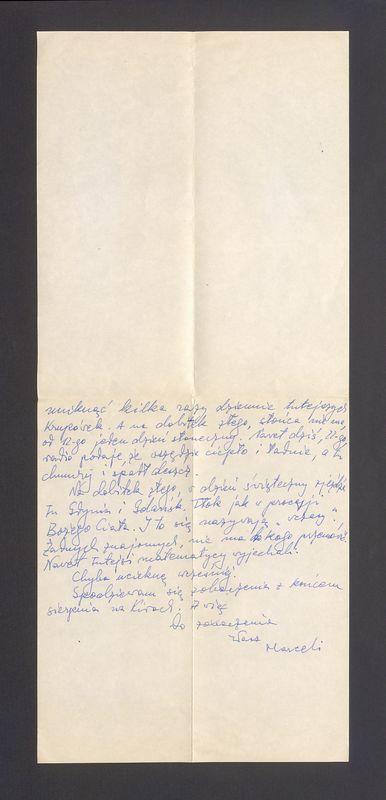 uniknąć kilka razy dziennie tutejszych
Krupówek. A na dobitek złego, słońca nie ma,
od 12-go jeden dzień słoneczny. Nawet dziś, 22-go
radio podaje, że wszędzie ciepło i ładnie, a tu
chmurzy i spadł deszcz.
Na dobitek złego, w dzień świąteczny
tu Gdynia i Gdańsk. Tłok jak w procesji
Bożego Ciała. I to się nazywają "wczasy"!
Żadnych znajomych, nie ma do kogo przemówić.
Nawet tutejsi matematycy wyjechali.
Chyba ucieknę wcześniej.
Spodziewam się zobaczenia z końcem
sierpnia na Kirach. A więc
Do zobaczenia
Wasz
Marceli